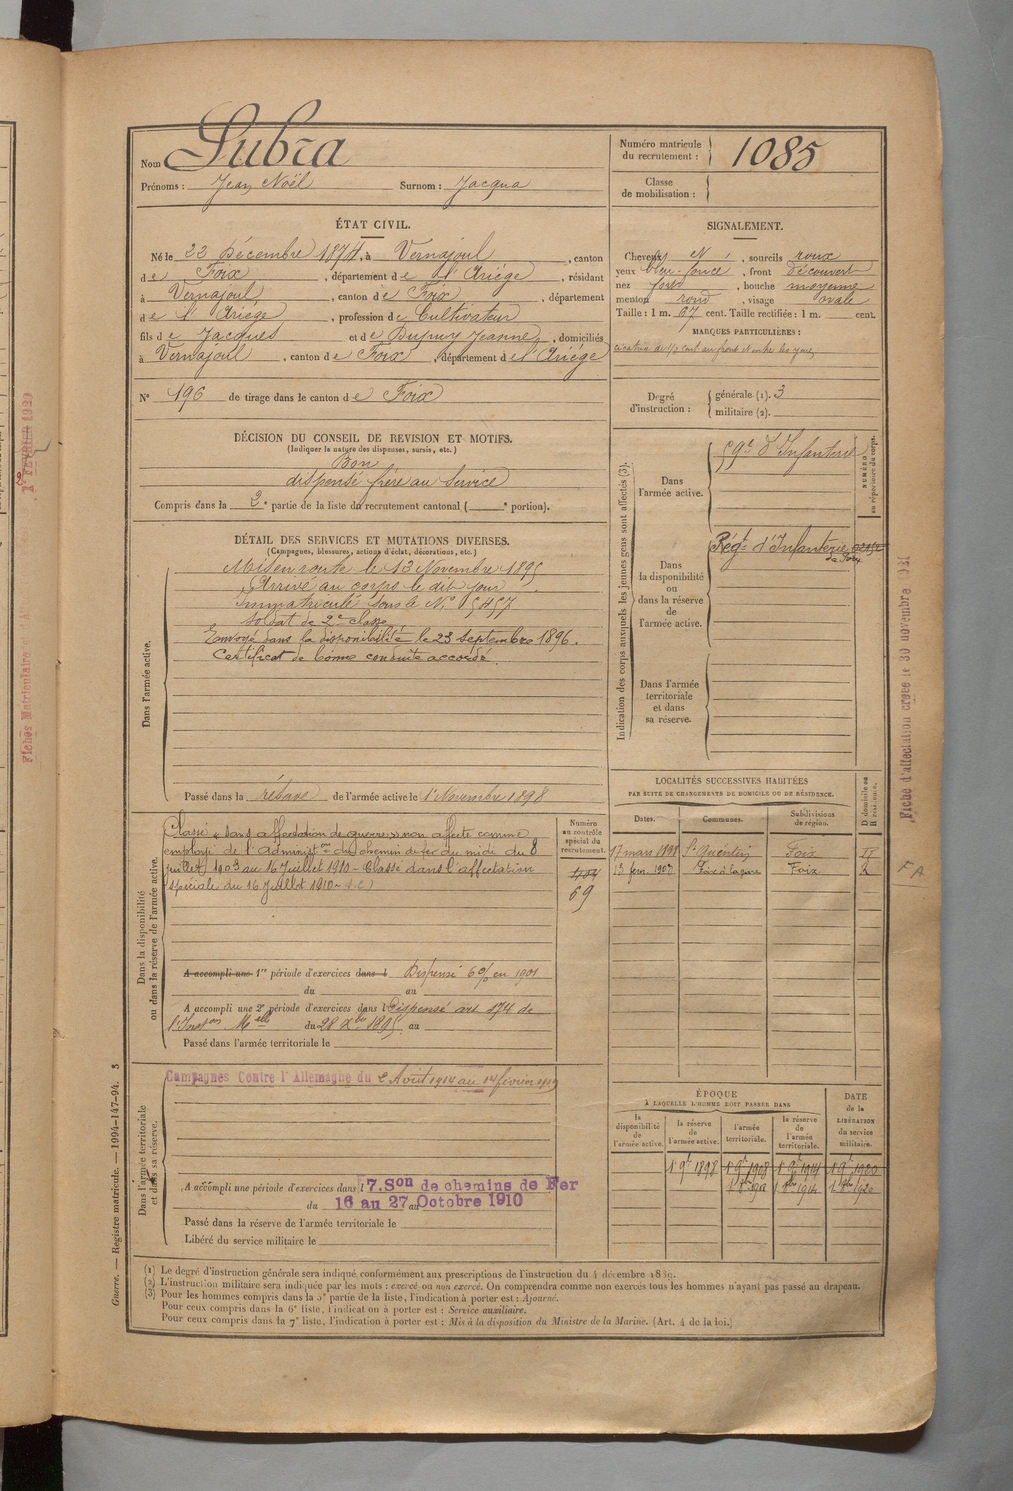 Nom Subra
Prénoms : Jean Noël Surnom : Jacqua
Numéro matricule du recrutement : 1085
Classe de mobilisation :
ÉTAT CIVIL.
Né le 23 Décembre 1874, à Vernajoul, canton
de Foix, département de l'Ariège, résidant
à Vernajoul, canton de Foix, département
de l'Ariège, profession de Cultivateur
fils de Jacques et de Dupuy Jeanne, domiciliés
à Vernajoul, canton de Foix, département de l'Ariège
N° 196 de tirage dans le canton de Foix
SIGNALEMENT.
Cheveux N, sourcils roux
yeux bleu-foncé, front découvert
nez fort, bouche moyenne
menton rond, visage ovale
Taille : 1 m. 67 cent. Taille rectifiée : 1 m. cent.
MARQUES PARTICULIÈRES :
cicatrice de 1/2 cent au front entre les yeux
Degré d'instruction : générale (1). 3
militaire (2).
DÉCISION DU CONSEIL DE REVISION ET MOTIFS.
(Indiquer la nature des dispenses, sursis, etc.)
Bon
dispensé frère au service
Compris dans la 2e partie de la liste du recrutement cantonal ( e portion).
DÉTAIL DES SERVICES ET MUTATIONS DIVERSES.
(Campagnes, blessures, actions d'éclat, décorations, etc.)
Dans l'armée active.
Mis en route le 13 Novembre 1895
Arrivé au corps le dit jour
Immatriculé sous le N° 5457
soldat de 2e classe
Envoyé dans la disponibilité le 23 septembre 1896.
Certificat de bonne conduite accordé.
Passé dans la réserve de l'armée active le 1 Novembre 1898
Indication des corps auxquels les jeunes gens sont affectés (3).
NUMÉRO au répertoire du corps.
Dans l'armée active.
59e d'Infanterie
Dans la disponibilité ou dans la réserve de l'armée active.
Régt d'Infanterie
de Foix
Dans l'armée territoriale et dans sa réserve.
LOCALITÉS SUCCESSIVES HABITÉES
PAR SUITE DE CHANGEMENTS DE DOMICILE OU DE RÉSIDENCE.
Dates. Communes. Subdivisions de région. D domicile ou R résidence.
17 mars 1898 St Quentin Foix
13 fevr. 1903 Foix à la gare Foix
Dans la disponibilité ou dans la réserve de l'armée active.
Numéro au contrôle spécial du recrutement.
69
Classé "sans affectation de guerre" non affecté comme
employé de l'Administon du chemin de fer du midi du 8
juillet 1903 au 16 Juillet 1910 - Classé dans l'affectation
spéciale du 16 Juillet 1910
A accompli une 1re période d'exercices dans l Dispensé 6% en 1901
du au
A accompli une 2e période d'exercices dans l Dispensé art 174 de
l'Inston Melle du 28 Xbre 1895 au
Passé dans l'armée territoriale le
Dans l'armée territoriale et dans sa réserve.
Campagnes Contre l'Allemagne du 2 Août 1914 au 14 février 1919
A accompli une période d'exercices dans l 7. Son de chemins de Fer
du 16 au 27 au Octobre 1910
Passé dans la réserve de l'armée territoriale le
Libéré du service militaire le
ÉPOQUE
À LAQUELLE L'HOMME DOIT PASSER DANS
la disponibilité de l'armée active. la réserve de l'armée active. l'armée territoriale. la réserve de l'armée territoriale. DATE de la LIBÉRATION du service militaire.
1 9e 1898 1 9e 1908 1 9e 1914 1 9e 1920
(1) Le degré d'instruction générale sera indiqué conformément aux prescriptions de l'instruction du 4 décembre 1889.
(2) L'instruction militaire sera indiquée par les mots : exercé ou non exercé. On comprendra comme non exercés tous les hommes n'ayant pas passé au drapeau.
(3) Pour les hommes compris dans la 5e partie de la liste, l'indication à porter est : Ajourné.
Pour ceux compris dans la 6e liste, l'indication à porter est : Service auxiliaire.
Pour ceux compris dans la 7e liste, l'indication à porter est : Mis à la disposition du Ministre de la Marine. (Art. 4 de la loi.)
Guerre. — Registre matricule. — 1994-147-94. 3
Fiche d'affectation créée le 30 novembre 1931
FA
Fiches Matriculaire